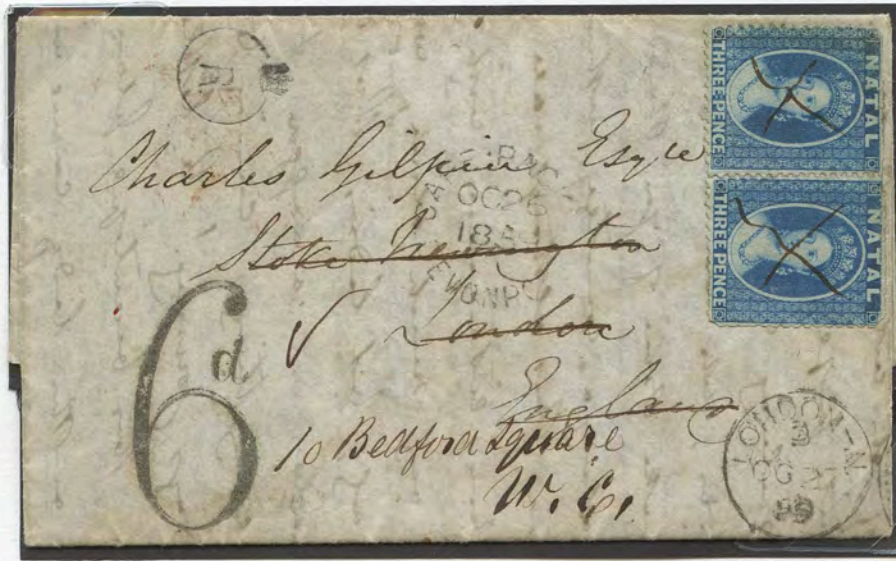 NATAL
THREE PENCE
NATAL
THREE PENCE
Charles Gilpin Esqre
Stoke Newington
London
England
10 Bedford Square
W.C.
6d
OC 26
LONDON-N
OC 27